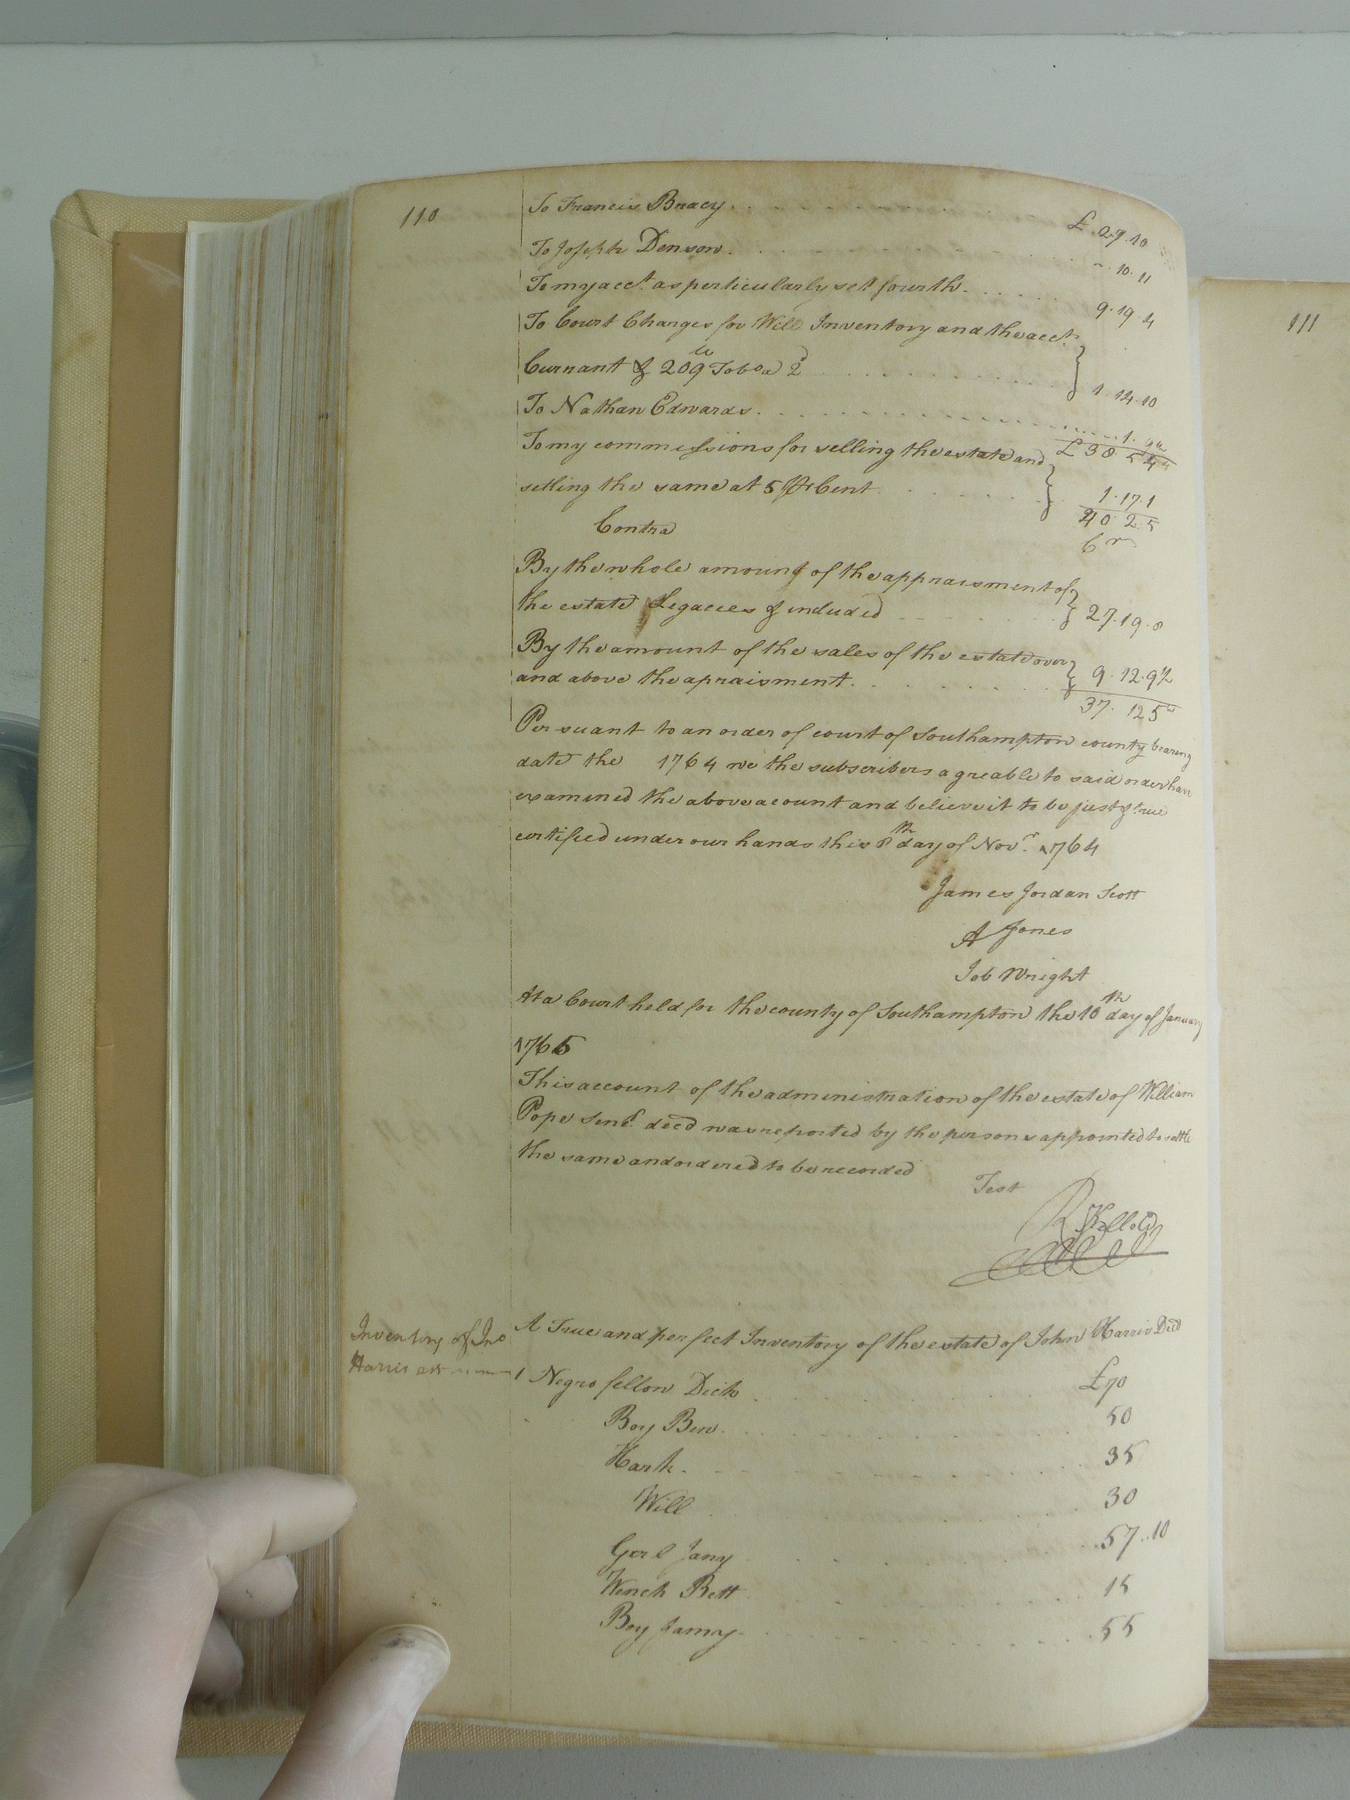 110
To Francis Bracy £ 29.10
To Joseph Denson - . 10. 11
To my acct. as perticularly sett fourth 9. 19. 4
To Court Charges for Will Inventory and the acct.
Currant & 209 Toboa 2d 1. 14. 10
To Nathan Edwards 1.
£ 38 5 4
To my commissions for selling the estate and
setling the same at 5 Pr Cent 1. 17. 1
40. 2. 5
Contra Cr
By the whole amount of the appraisment of
the estate Legacees & included 27. 19. 8
By the amount of the sales of the estate over
and above the apraisment. 9. 12. 9½
37. 12 5
Persuant to an order of court of Southampton county bearing
date the 1764 we the subscribers agreable to said order have
examined the above acount and believe it to be just & true
certified under our hands this 8th day of Novr. 1764
James Jordan Scott
A Jones
Job Wright
At a Court held for the county of Southampton the 10th day of January
1765
This account of the administration of the estate of William
Pope Senr. decd was reported by the persons appointed to settle
the same and ordered to be recorded
Test
R Kello Cl
Inventory of Jno
Harris est
A True and perfect Inventory of the estate of John Harris Decd
1 Negro fellow Dick £70
Boy Ben 50
Hark 35
Will 30
Gerl Jany 57..10
Wench Bett 15
Boy Jamy 55
111